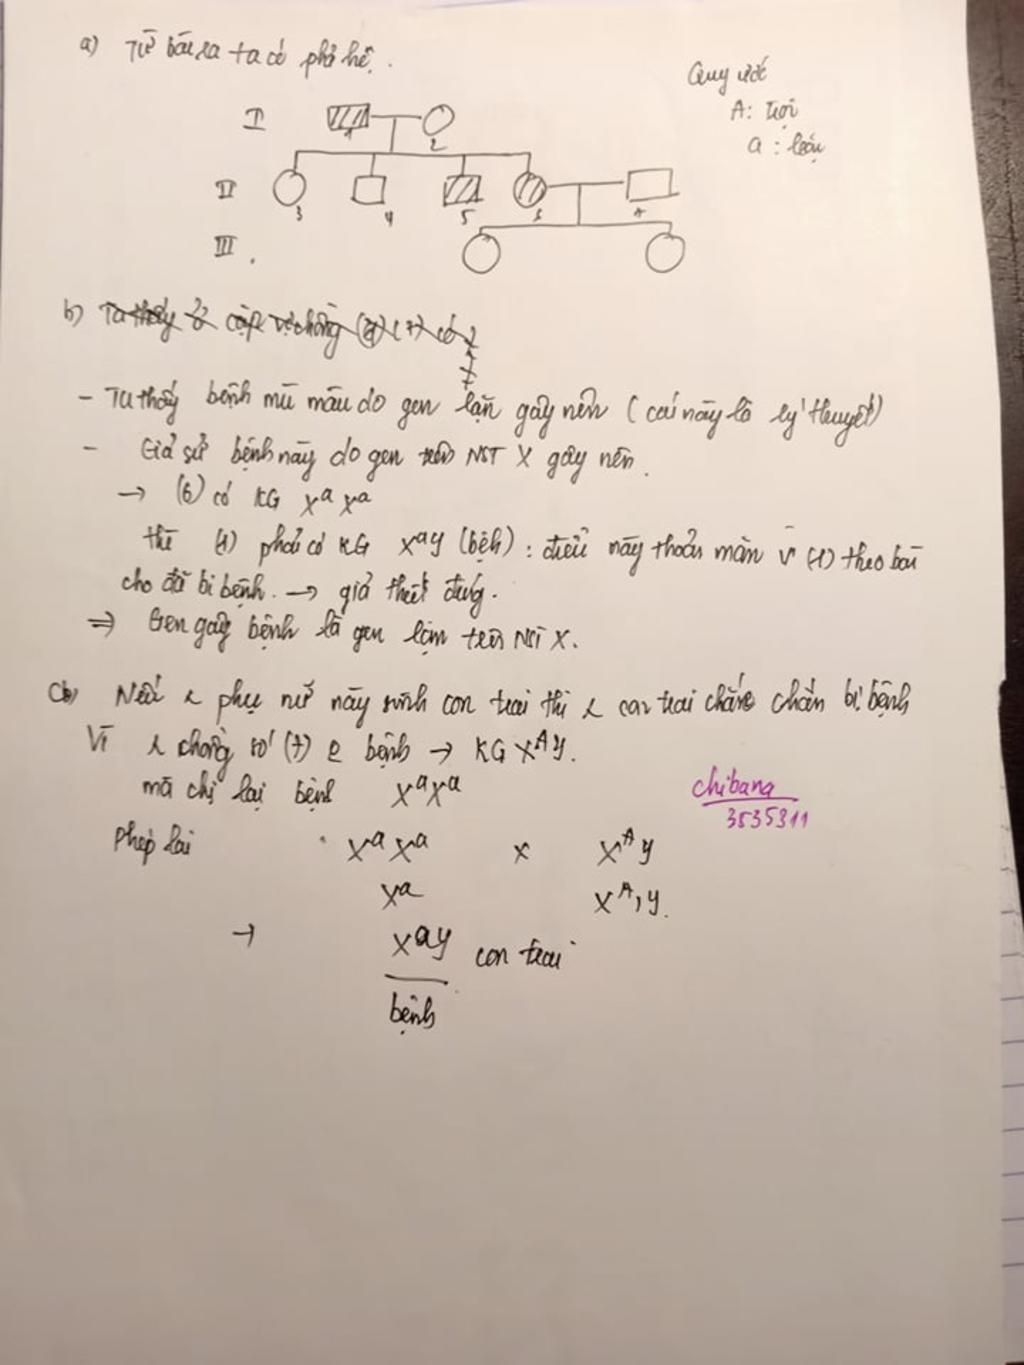 a) Từ bài ra ta có phả hệ.
Quy ước
A: trội
a : lặn
I
1
2
II
3
4
5
6
7
III
b) Ta thấy ở cặp vợ chồng (7) có 2
- Ta thấy bệnh mù màu do gen lặn gây nên (cái này là lý thuyết)
- Giả sử bệnh này do gen trên NST X gây nên.
→ (6) có KG XᵃXᵃ
thì (1) phải có KG Xᵃy (bệh) : điều này thoản mãn vì (1) theo bài
cho đã bị bệnh. → giả thiết đúng.
⇒ Gen gây bệnh là gen lặn trên NST X.
Cb) Nếu phụ nữ này sinh con trai thì con trai chắc chắn bị bệnh
Vì chồng số (7) bệnh → KG Xᴬy.
mà chị lại bệnh XᵃXᵃ
chibana
3535311
Phép lai XᵃXᵃ x Xᴬy
Xᵃ Xᴬ, y.
→ Xᵃy con trai
bệnh